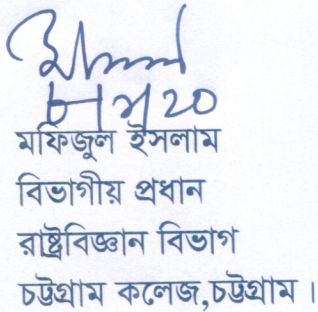 মফিজুল ইসলাম
বিভাগীয় প্রধান
রাষ্ট্রবিজ্ঞান বিভাগ
চট্টগ্রাম কলেজ,চট্টগ্রাম।